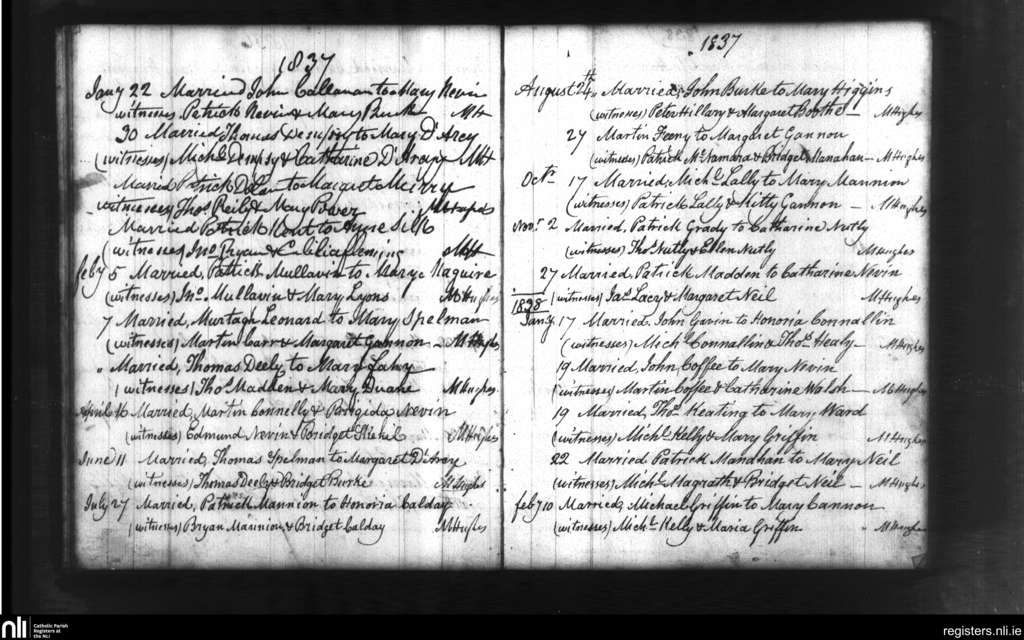 1837
Jany 22 Married John Callanan to Mary Nevin
witnesses Patrick Nevin & Mary Burke MH
30 Married, Thomas Dempsy to Mary D'Arcy
(witnesses) Michl Dempsy & Catharine D'Arcy MH
Married Patrick Dolan to Margaret Merry
witnesses Thos Reily & Mary Power
Married Patrick Kent to Anne Silk
(witnesses Jno Ryan & Celilia fleming MH
feby 5 Married, Patrick Mullavin to Mary Naguire
(witnesses) Jno. Mullavin & Mary Lyons MHughes
7 Married, Murtagh Leonard to Mary Spelman
(witnesses) Martin Carr & Margaret Gannon MHughes
" Married, Thomas Deely to Mary Lahy
(witnesses) Thos Madden & Mary Duane MHughes
April 16 Married, Martin Connelly & Brigida Nevin
(witnesses) Edmund Nevin & Bridget MHughes
June 11 Married, Thomas Spelman to Margaret D'Arcy
(witnesses) Thomas Deely & Bridget Burke MHughes
July 27 Married, Patrick Mannion to Honoria Calday
(witness) Bryan Mannion & Bridget Calday MHughes
1837
August 24th Married, John Burke to Mary Higgins
(witnesses) Peter Hillary & Margaret Boothe — MHughes
27 Martin Feeny to Margaret Gannon
(witnesses) Patrick McNamara & Bridget Manahan — MHughes
Octr 17 Married, Michl Lally to Mary Mannion
(witnesses) Patrick Lally & Kitty Gannon — MHughes
Novr 2 Married, Patrick Grady to Catharine Nutly
(witnesses) Thos Nutly & Ellen Nutly MHughes
27 Married, Patrick Madden to Catharine Nevin
(witnesses) Jas Lacy & Margaret Neil MHughes
1838
Jany 17 Married, John Gavin to Honoria Connallin
(witnesses) Michl Connallin & Thos Healy — MHughes
19 Married, John Coffee to Mary Nevin
(witnesses) Martin Coffee & Catharine Walsh — MHughes
19 Married, Thos Keating to Mary Ward
(witnesses) Michl Kelly & Mary Griffin MHughes
22 Married, Patrick Manahan to Mary Neil
(witnesses) Michl Magrath & Bridget Neil — MHughes
feby 10 Married, Michael Griffin to Mary Cannon
(witness) Michl Kelly & Maria Griffin MHughes
nli Catholic Parish
Registers at
the NLI
registers.nli.ie